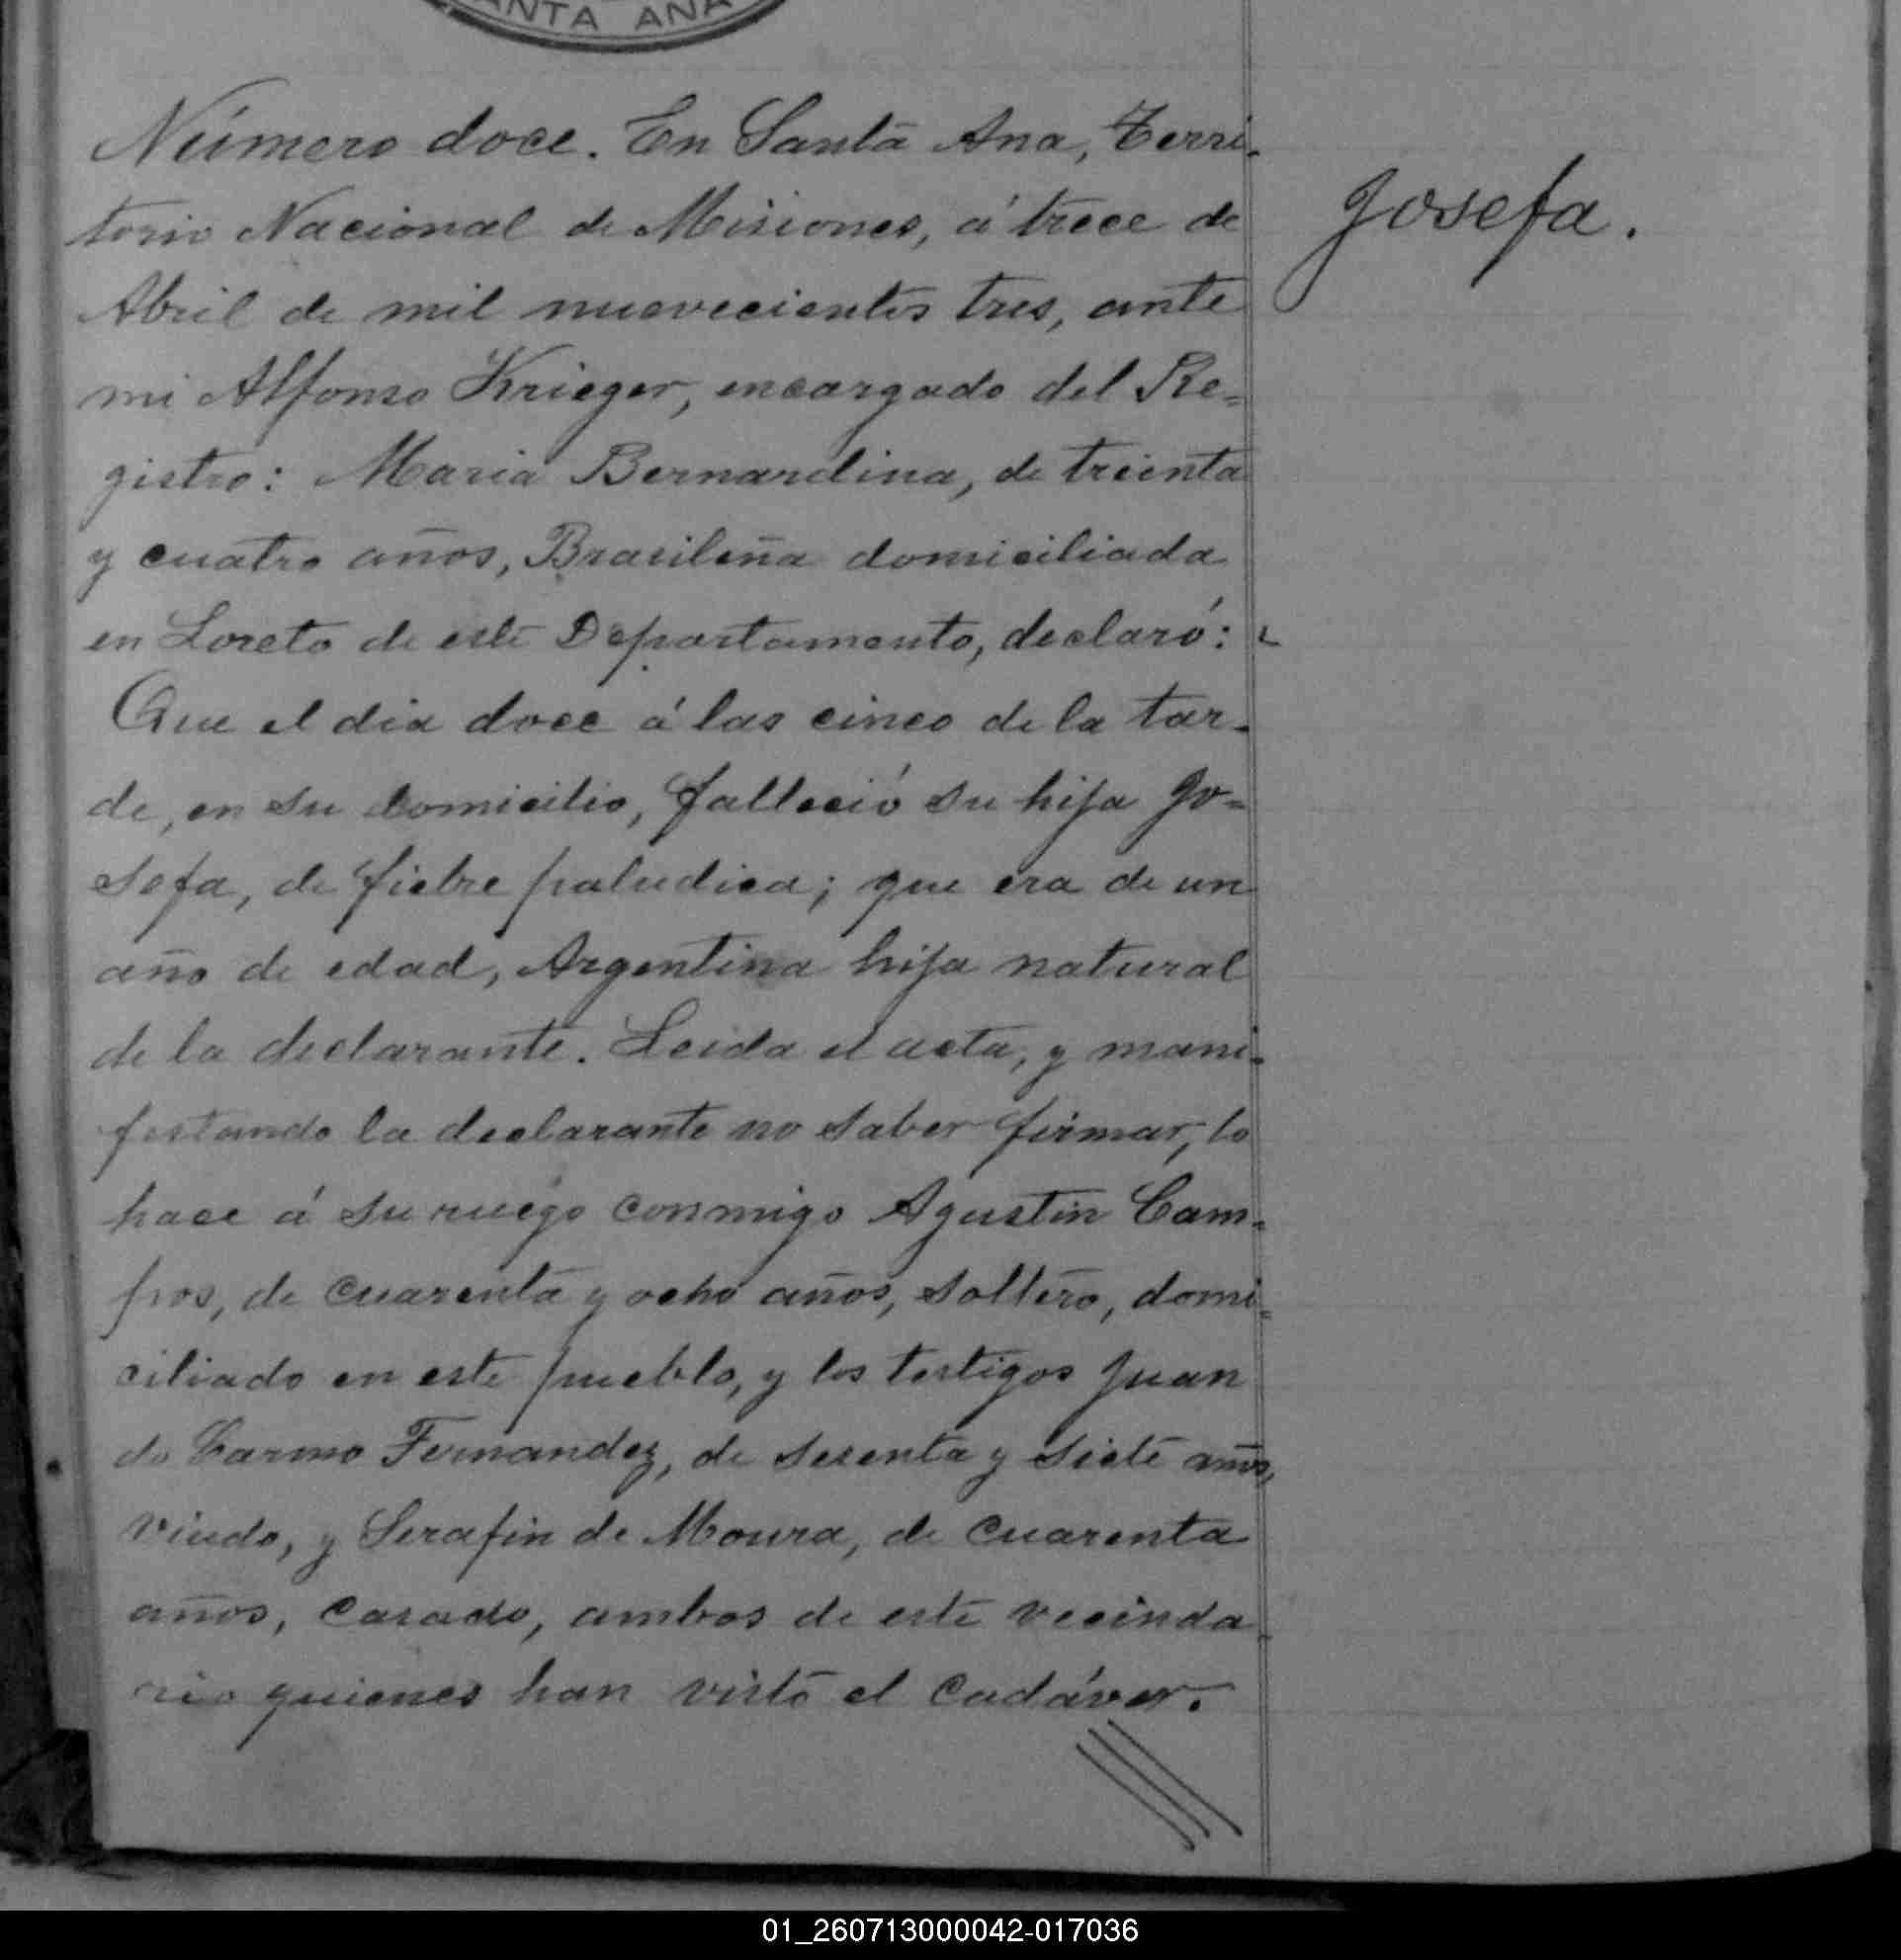 SANTA ANA
Número doce. En Santa Ana, Terri-
torio Nacional de Misiones, á trece de
Abril de mil nuevecientos tres, ante
mi Alfonso Krieger, encargado del Re=
gistro: Maria Bernardina, de treinta
y cuatro años, Brasileña domiciliada
en Loreto de este Departamento, declaró:
Que el dia doce á las cinco de la tar-
de, en su domicilio, falleció su hija Jo=
sefa, de fiebre paludica; que era de un
año de edad, Argentina hija natural
de la declarante. Leida el acta, y mani-
festando la declarante no saber firmar, lo
hace á su ruego conmigo Agustin Cam-
pos, de cuarenta y ocho años, soltero, domi=
ciliado en este pueblo, y los testigos Juan
do Carmo Fernandez, de sesenta y siete años,
viudo, y Serafin de Moura, de cuarenta
años, casado, ambos de este vecinda-
rio quienes han visto el cadáver.
Josefa.
01_260713000042-017036